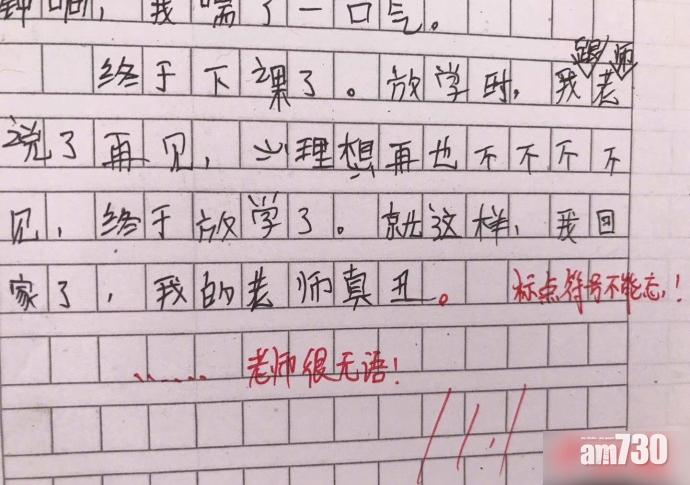 钟响，我喘了一口气。
跟 师
终于下课了。放学时，我老
说了再见，心理想再也不不不不
见，终于放学了。就这样，我回
家了，我的老师真丑。 标点符号不能忘！
...... 老师很无语！
11.1
am730